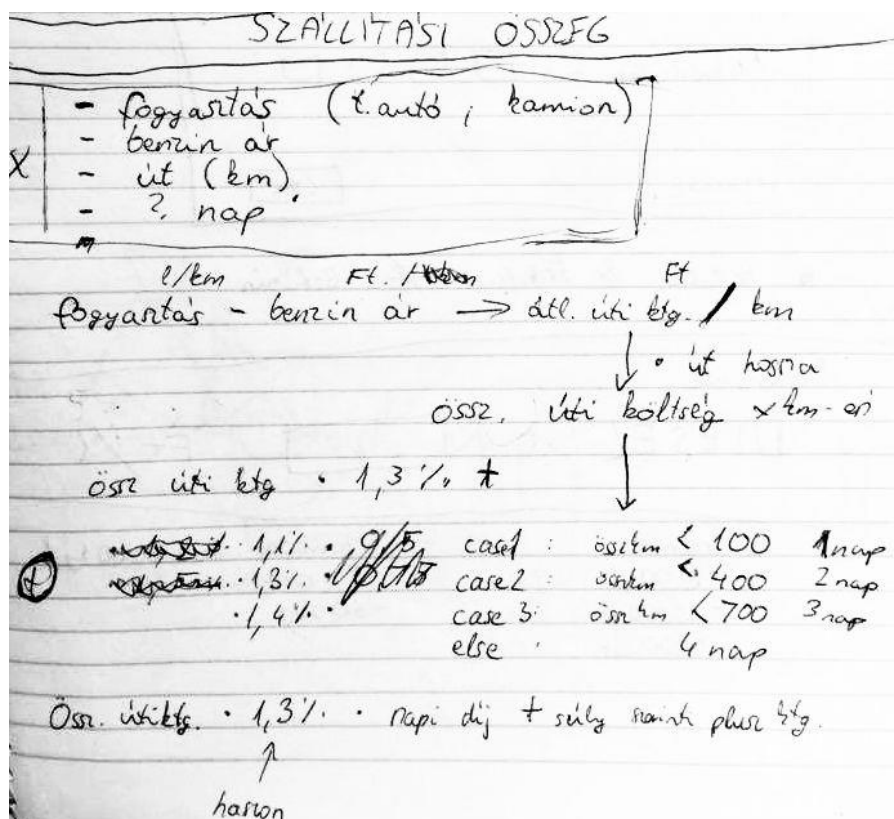 SZÁLLÍTÁSI ÖSSZEG
- fogyasztás (t.autó, kamion)
X - benzin ár
- út (km)
- ? nap
l/km Ft. / Ft
fogyasztás - benzin ár → átl. úti ktg. / km
↓ • út hossza
össz. úti költség x km-en
↓
össz úti ktg • 1,3 %. +
• 1,1%. • case1 : összkm < 100 1 nap
• 1,3%. • case2 : összkm < 400 2 nap
• 1,4%. • case 3: össz km < 700 3 nap
else : 4 nap
Össz. útiktg. • 1,3%. • napi díj + súly szerinti plusz ktg.
↑
haszon